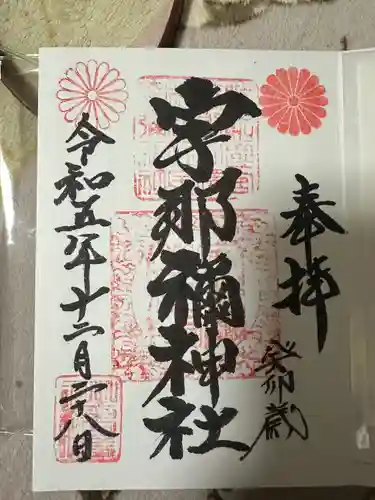 奉拝
癸卯歳
宇那禰神社
令和五年十二月二十八日